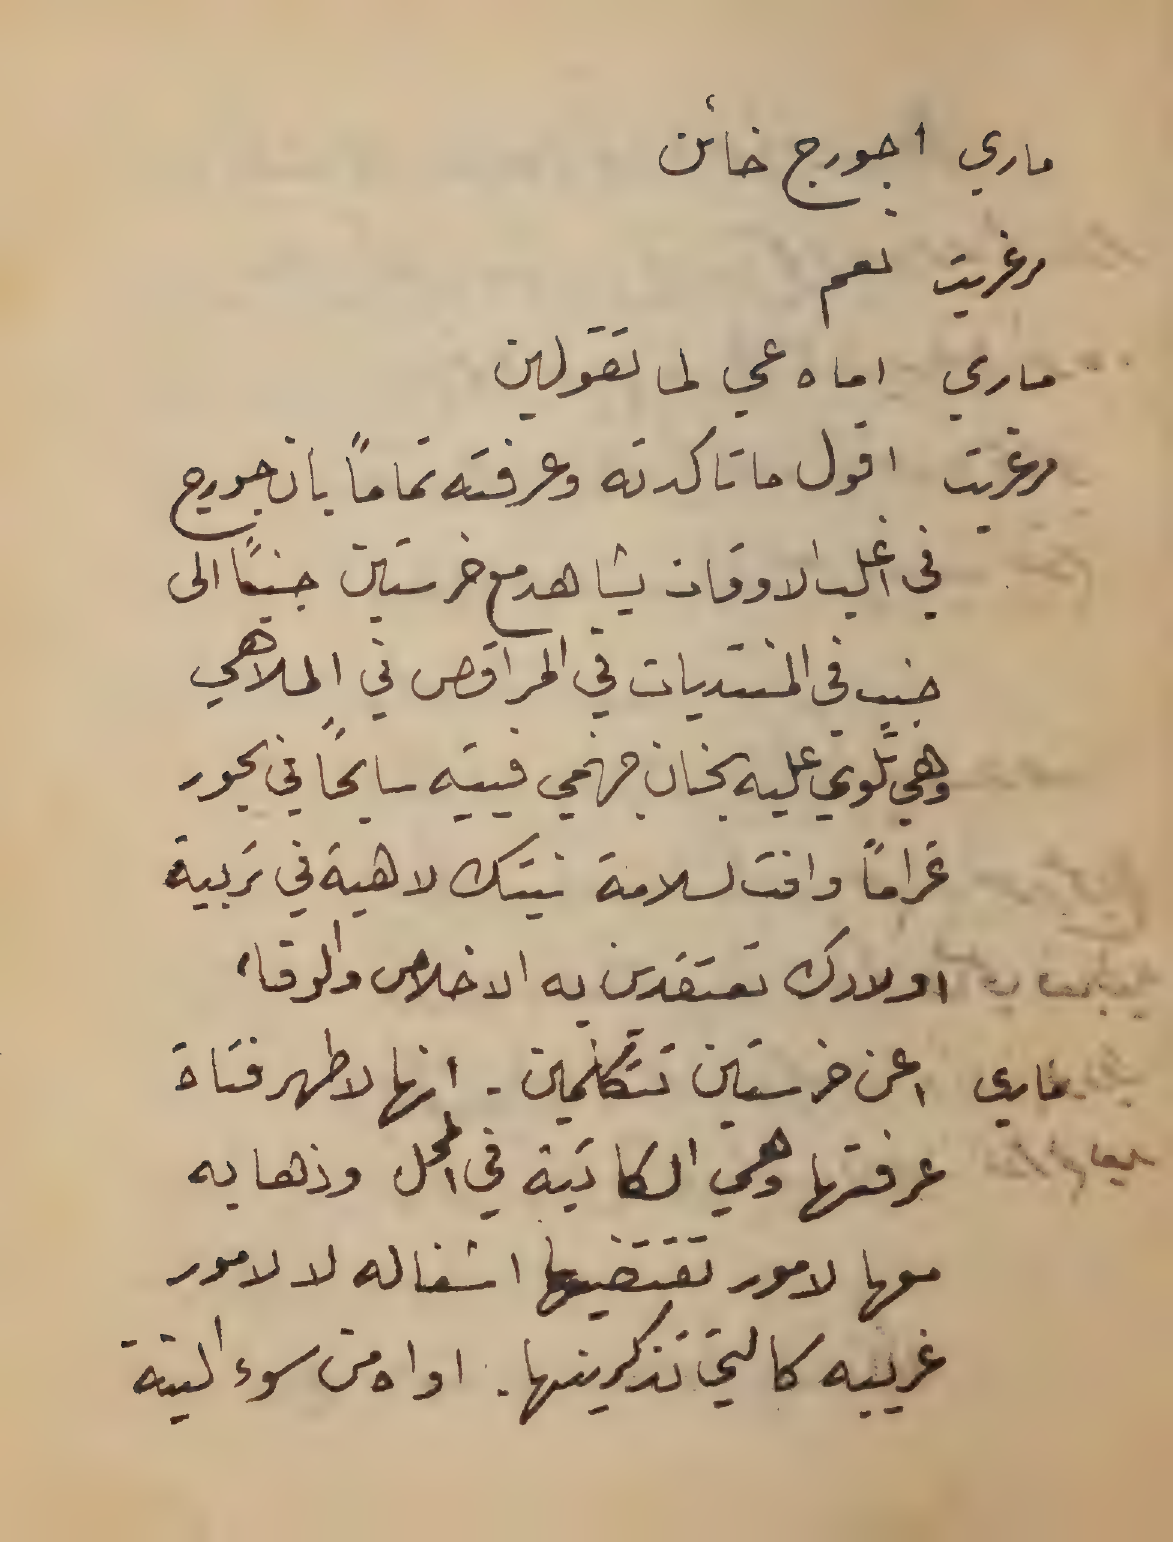 ماري اجورج خائن
مرغريت نعم
ماري اماه عي لما تقولين
مرغريت اقول ما تاكدته وعرفته تماماً بان جورج
في اغلب الاوقات يشاهد مع خرستين جنباً الى
جنب في المنتديات في المراقص في الملاهي
وهي تلوي عليه بحنان جهنمي فيتيه سابحاً في بحور
غراماً وانت لسلامة نيتك لاهية في تربية
اولادك تعتقدين به الاخلاص والوفاء
ماري اعن خرستين تتكلمين . انها لاطهر فتاة
عرفتها وهي الكاتبة في المحل وذهابه
معها لامور تقتضيها اشغاله لا لامور
غريبه كالتي تذكرينها . اواه من سوء النية